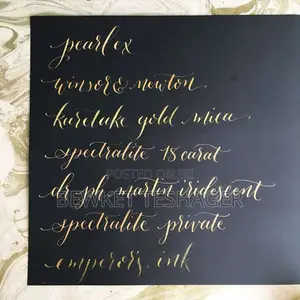 pearl ex
winsor & newton
kuretake gold mica
spectralite 18 carat
POSTED ON
dr. ph. martin iridescent
BEWKET TESHAGER
spectralite private
emperors ink